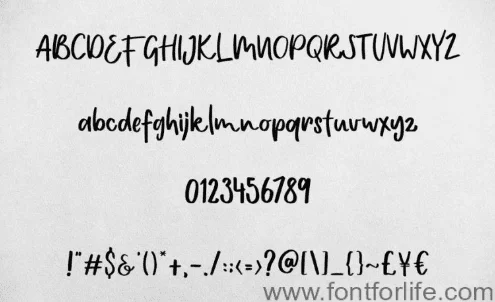 ABCDEFGHIJKLMNOPQRSTUVWXYZ
abcdefghijklmnopqrstuvwxyz
0123456789
!"#$&'()*+,-./:;<=>?@[\]_{}~£¥€
www.fontforlife.com